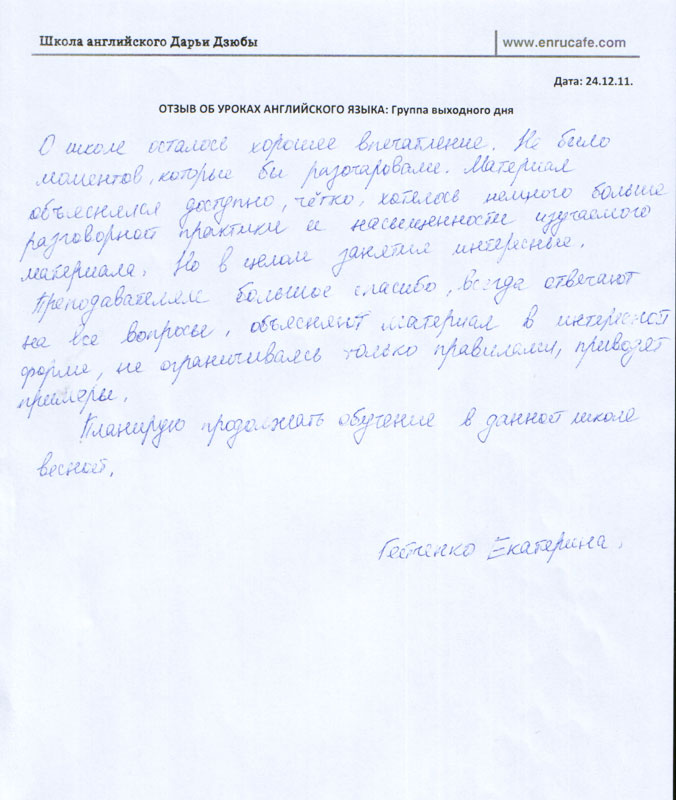 Школа английского Дарьи Дзюбы
www.enrucafe.com
Дата: 24.12.11.
ОТЗЫВ ОБ УРОКАХ АНГЛИЙСКОГО ЯЗЫКА: Группа выходного дня
О школе осталось хорошее впечатление. Не было
моментов, которые бы разочаровали. Материал
объяснялся доступно, чётко, хотелось немного больше
разговорной практики и насыщенности изучаемого
материала. Но в целом занятия интересные.
Преподавателям большое спасибо, всегда отвечают
на все вопросы, объясняют материал в интересной
форме, не ограничиваясь только правилами, приводят
примеры.
Планирую продолжать обучение в данной школе
весной.
Екатерина.